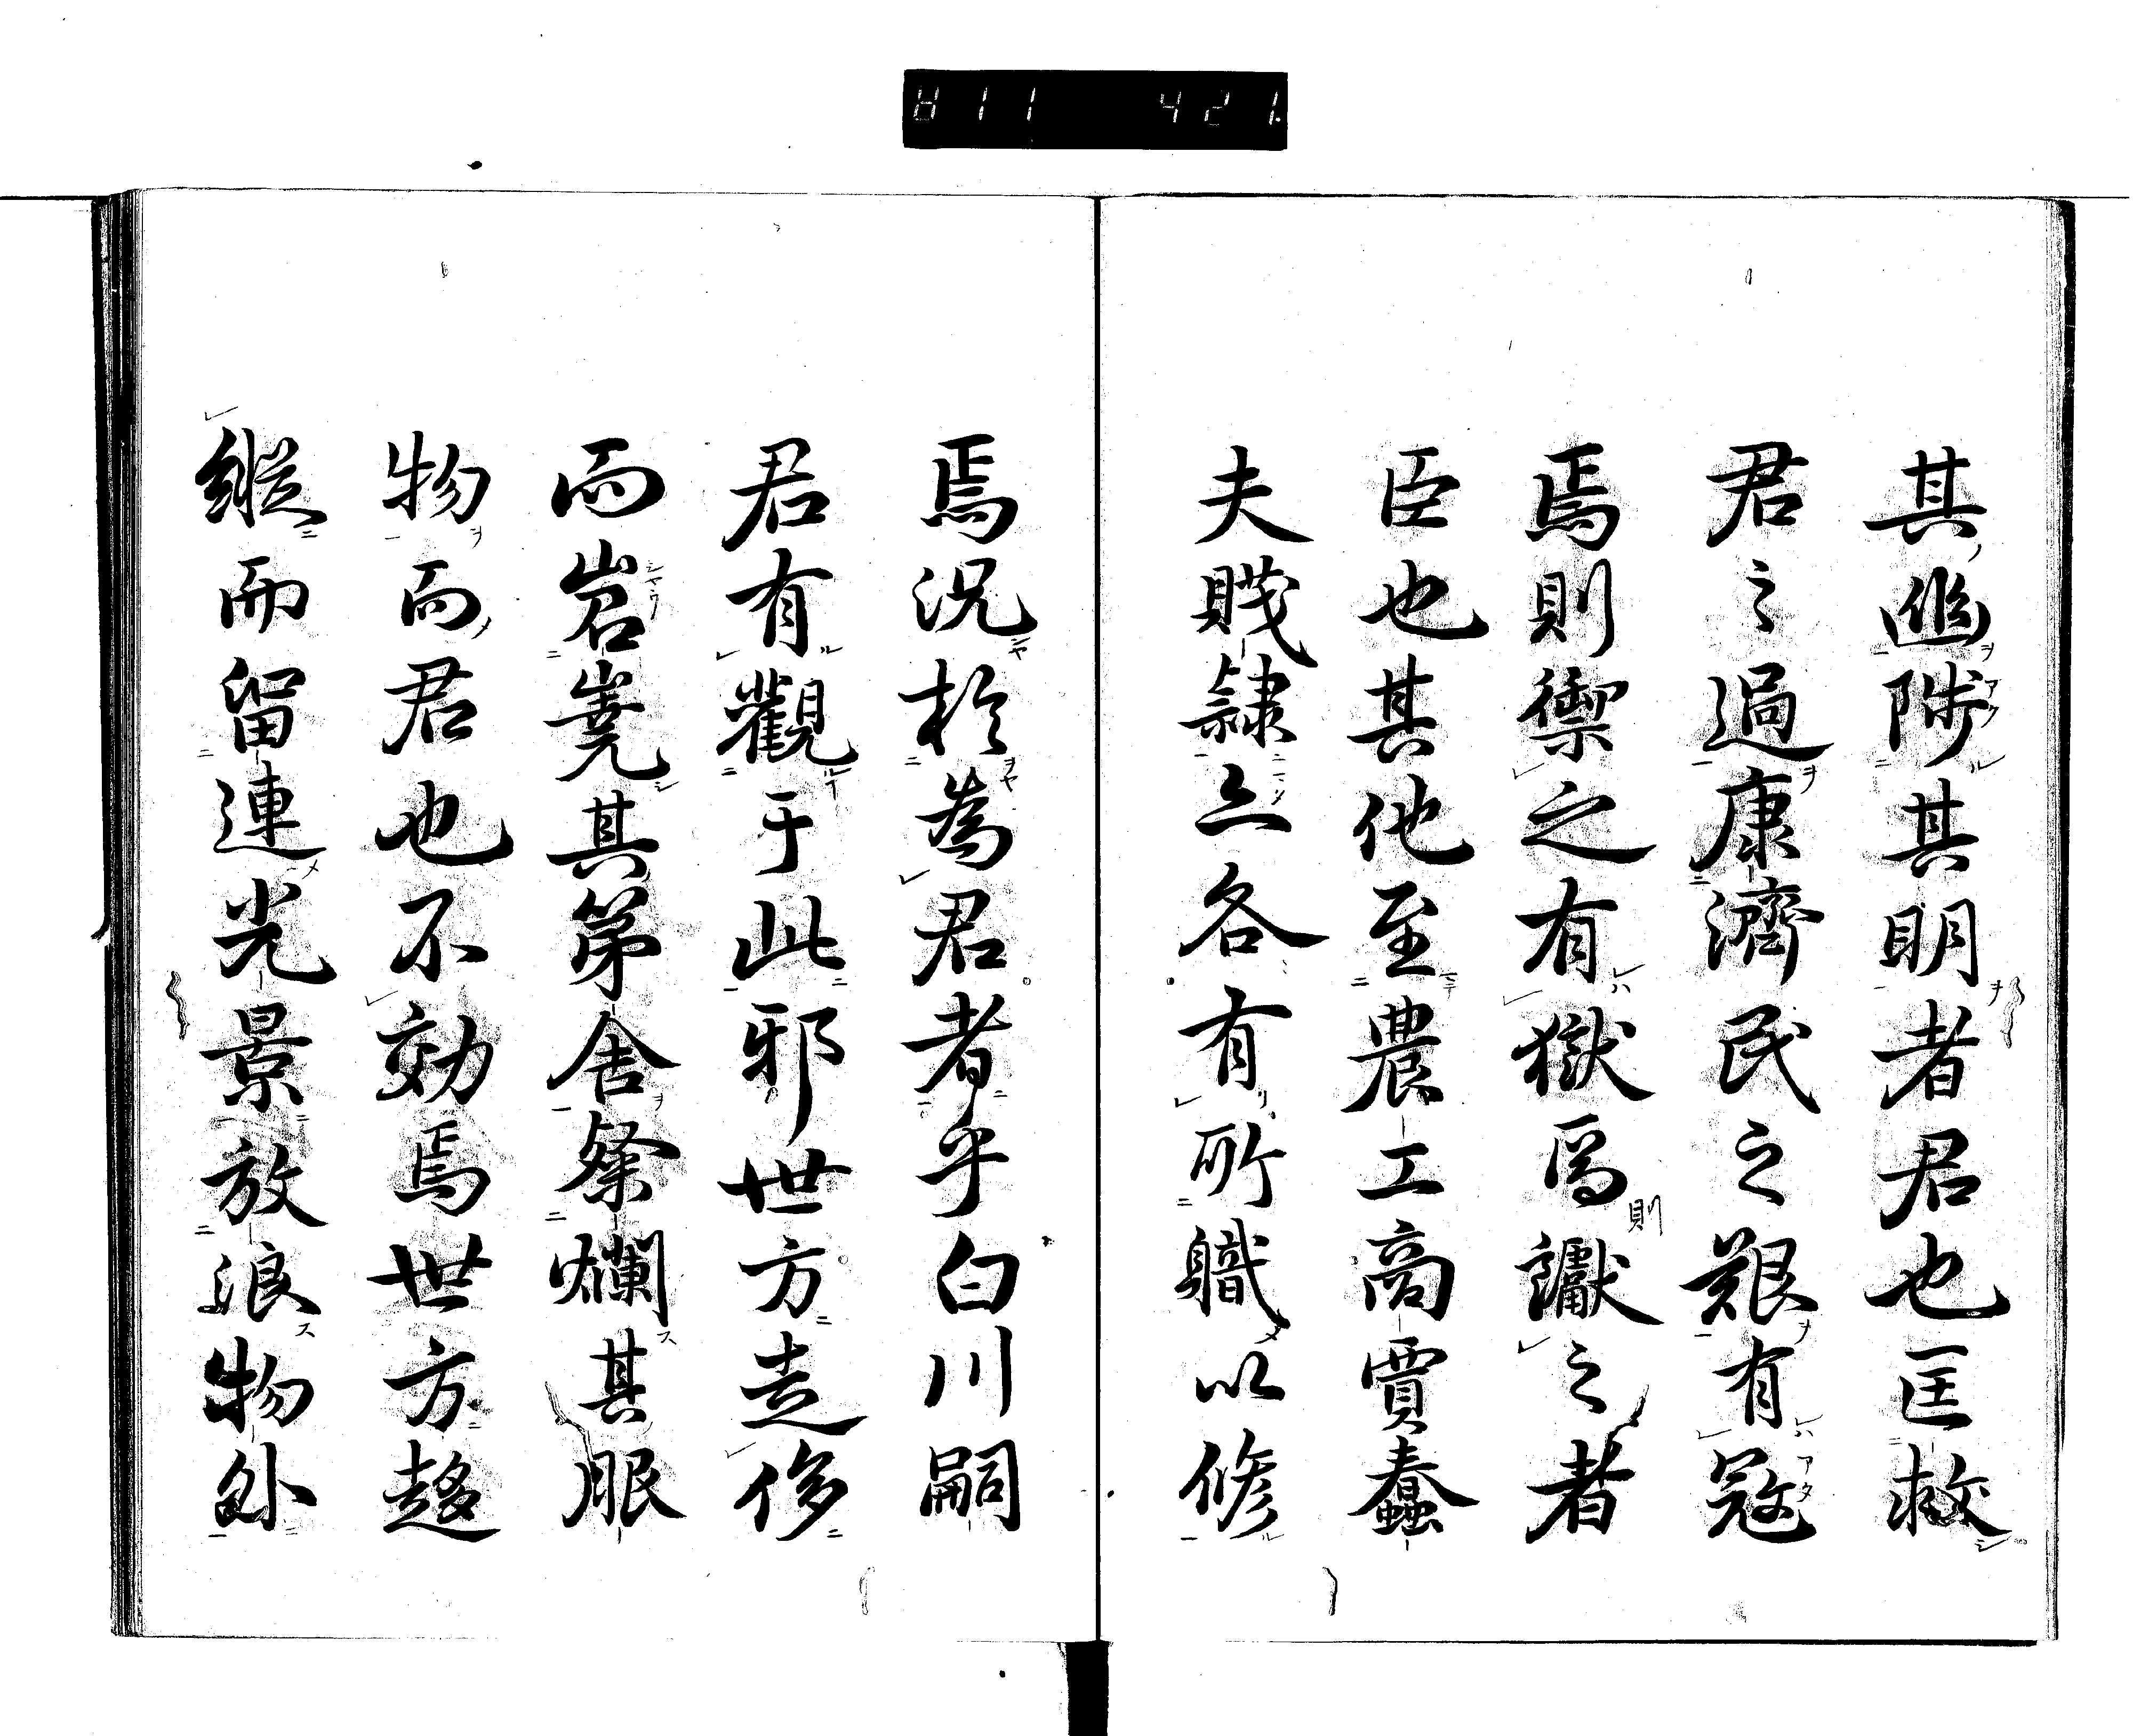 811 421
其幽陟其明者君也匡救
君之過康濟民之艱有寇
焉則禦之有獄焉則讞之者
臣也其他至農工商賈蠢
夫賤隷亦各有所職以修
焉況於為君者乎白川嗣
君有觀于此邪世方走侈
而岧嶤其第舍粲爛其服
物而君也不効焉世方趍
縱而留連光景放浪物外